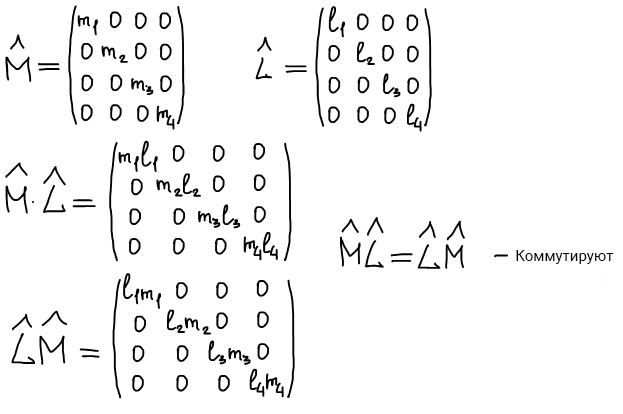 M̂ = (m₁ 0 0 0
0 m₂ 0 0
0 0 m₃ 0
0 0 0 m₄)
L̂ = (l₁ 0 0 0
0 l₂ 0 0
0 0 l₃ 0
0 0 0 l₄)
M̂·L̂ = (m₁l₁ 0 0 0
0 m₂l₂ 0 0
0 0 m₃l₃ 0
0 0 0 m₄l₄)
M̂L̂ = L̂M̂ – Коммутируют
L̂M̂ = (l₁m₁ 0 0 0
0 l₂m₂ 0 0
0 0 l₃m₃ 0
0 0 0 l₄m₄)